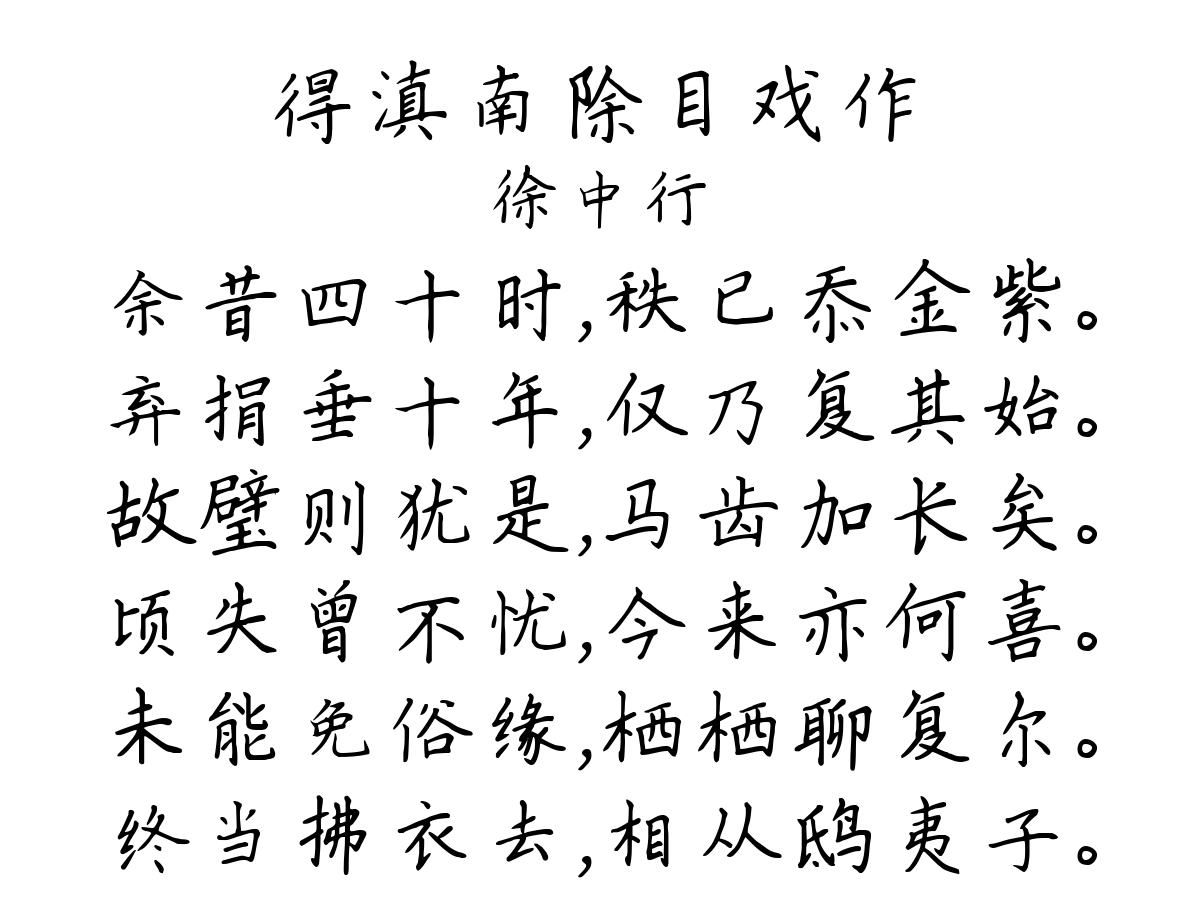 得滇南除目戏作
徐中行
余昔四十时,秩已忝金紫。
弃捐垂十年,仅乃复其始。
故璧则犹是,马齿加长矣。
顷失曾不忧,今来亦何喜。
未能免俗缘,栖栖聊复尔。
终当拂衣去,相从鸱夷子。